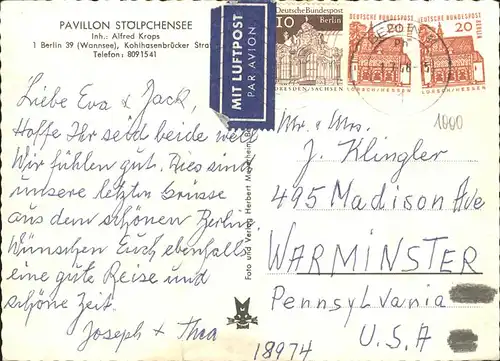 PAVILLON STÖLPCHENSEE
Inh.: Alfred Krops
1 Berlin 39 (Wannsee), Kohlhasenbrücker Stra
Telefon: 8091541
Liebe Eva & Jack,
Hoffe Ihr seid beide well
Wir fühlen gut. Dies sind
unsere letzten Grüsse
aus dem schönen Berlin.
Wünschen Euch ebenfalls
eine gute Reise und
schöne Zeit.
Joseph + Thea
MIT LUFTPOST
PAR AVION
Foto und Verlag Herbert
Deutsche Bundespost
10
Berlin
DRESDEN/SACHSEN
DEUTSCHE BUNDESPOST
20
LORSCH/HESSEN
DEUTSCHE BUNDESPOST
20
LORSCH/HESSEN
1000
Mr. + Mrs.
J. Klingler
495 Madison Ave
WARMINSTER
Pennsylvania
U.S.A
18974